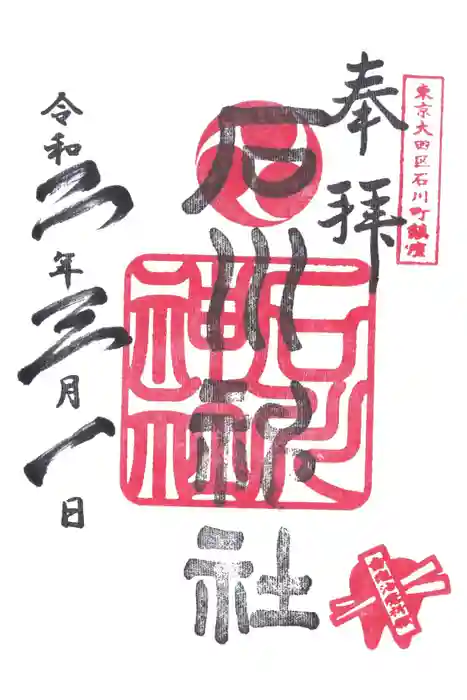 東京大田区石川町鎮座
奉拝
石川神社
石川
神社
令和二年三月一日